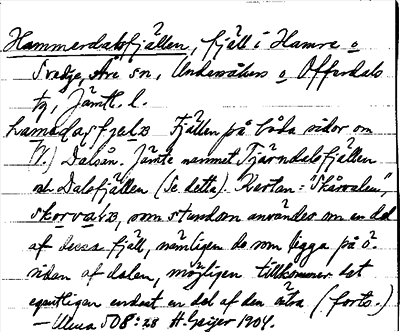 Hammerdalsfjällen, fjäll i Hamre o
Åre sn, Undersåkers o Offerdals
tg, Jämtl. l.
Fjällen på båda sidor om
Dalsån. Jämte namnet Tjärndalsfjällen
och Dalsfjällen (Se detta). Kartan: "Skårvalen",
som stundom användes om en del
af dessa fjäll, nämligen de som ligga på ö.
sidan af dalen, möjligen tillkommer det
egentligen endast en del af den (forts.)
— Ulma 508:28 H. Geijer 1904.